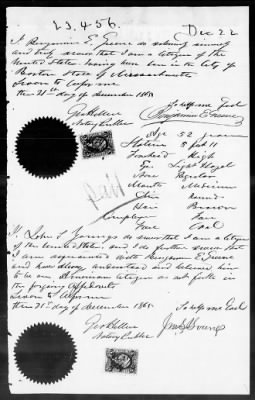 23,456.
Dec 22
I Benjamin E. Greene do solemnly swear
and truly declare that I am a citizen of the
United States. Having been born in the City of
Boston State of Massachusetts
Sworn to before me
this 21st day of December 1865
So help me God
Benjamin E Greene
Notary Public
Age 52 years
Stature 5 feet 11
Forehead High
Eyes Light Hazel
Nose Regular
Mouth Medium
Chin Round
Hair Brown
Complexion Fair
Face Oval
I, John S. Young do swear that I am a citizen
of the United States, and I do further swear that
I am acquainted with Benjamin E Greene
and have always understood and believed him
to be an American citizen as set forth in
the forgoing Affidavits
Sworn to before me
this 21st day of December 1865.
So help me God
Notary Public